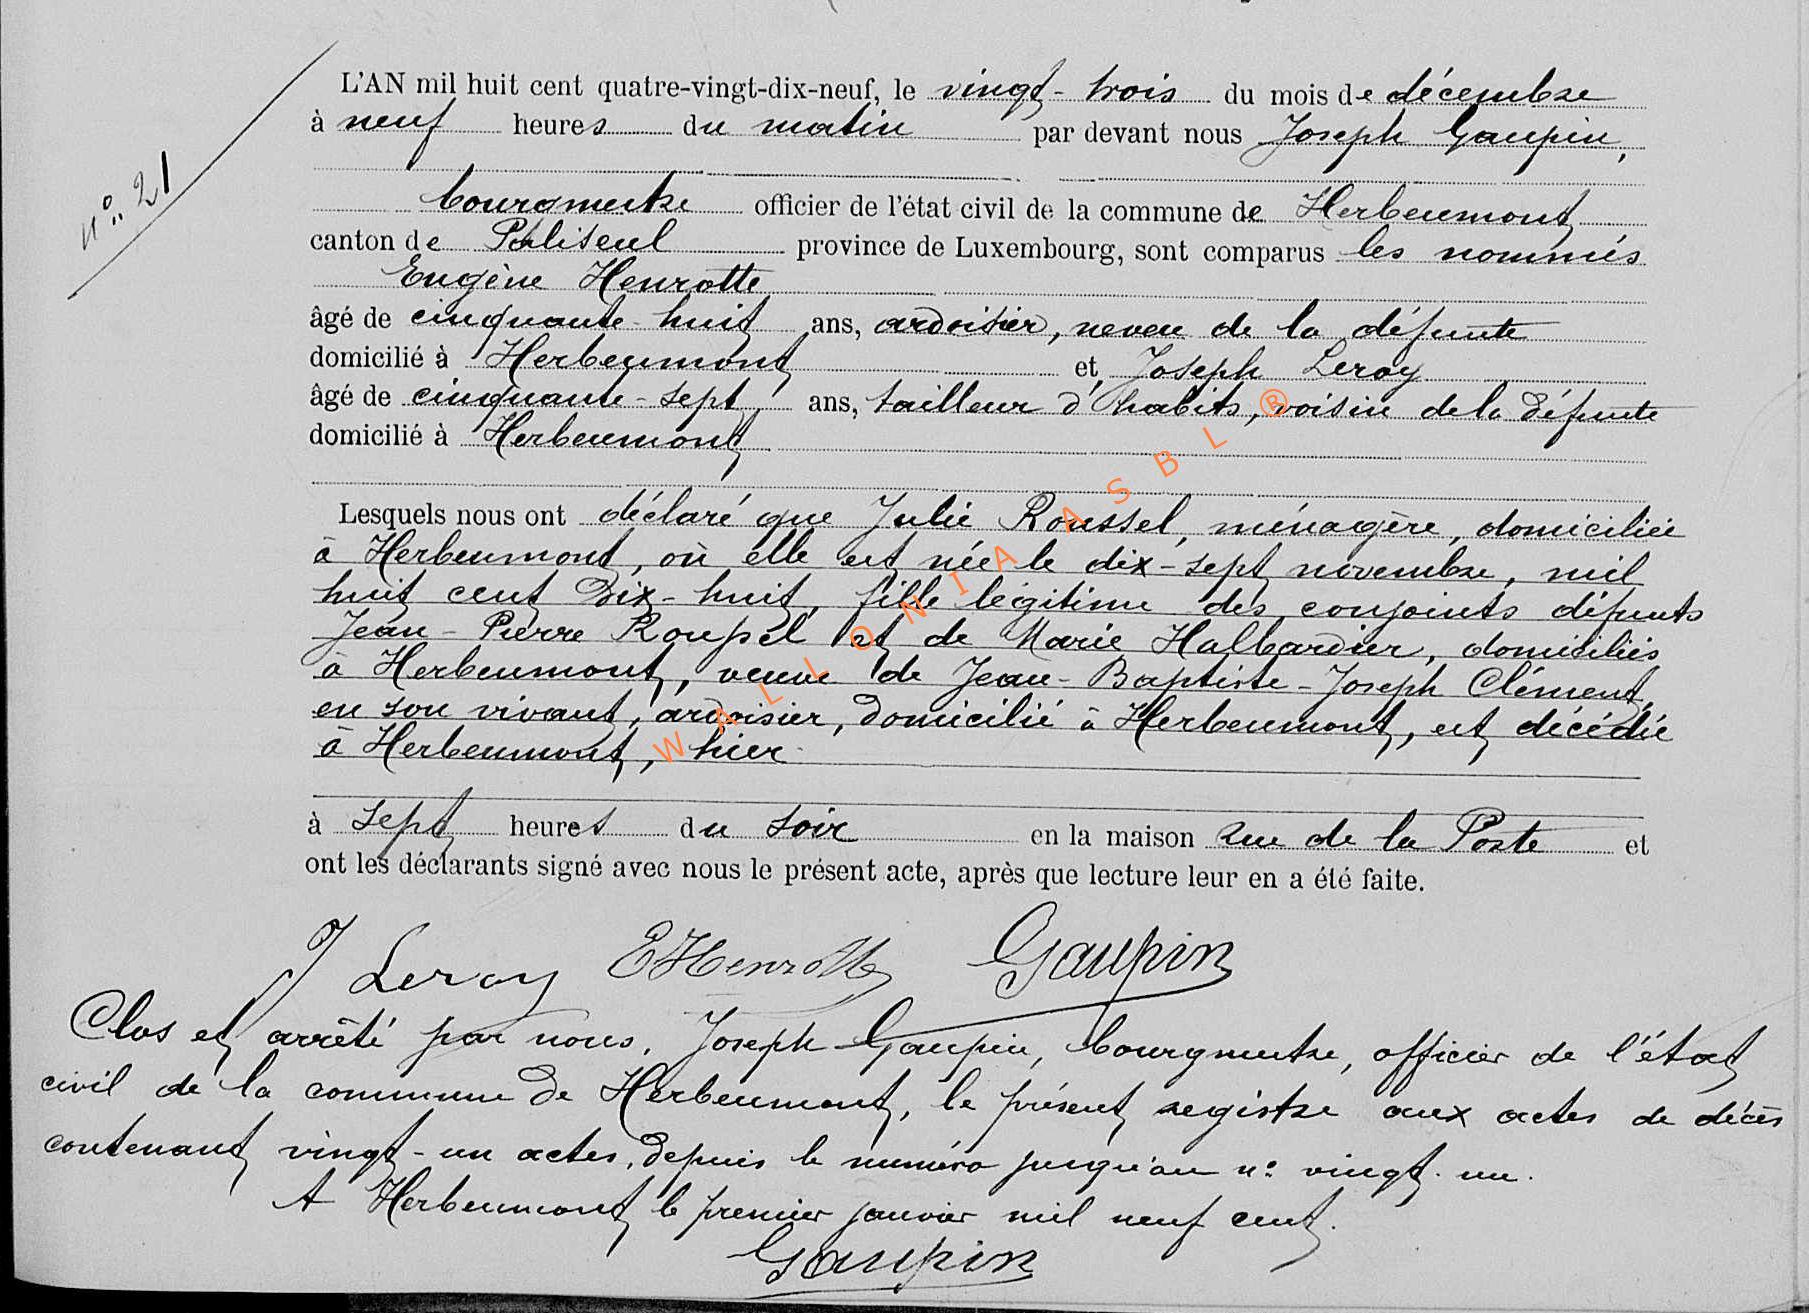 N° 21
L'AN mil huit cent quatre-vingt-dix-neuf, le vingt-trois du mois de décembre
à neuf heures du matin par devant nous Joseph Gaupin,
bourgmestre officier de l'état civil de la commune de Herbeumont
canton de Paliseul province de Luxembourg, sont comparus les nommés
Eugène Henrotte
âgé de cinquante-huit ans, ardoisier, neveu de la défunte
domicilié à Herbeumont et Joseph Leroy
âgé de cinquante-sept, ans, tailleur d'habits, voisin de la défunte
domicilié à Herbeumont
Lesquels nous ont déclaré que Julie Roussel, ménagère, domiciliée
à Herbeumont, où elle est née le dix-sept novembre, mil
huit cent dix-huit, fille légitime des conjoints défunts
Jean-Pierre Roussel et de Marie Halbardier, domiciliés
à Herbeumont, veuve de Jean-Baptiste-Joseph Clément,
en son vivant, ardoisier, domicilié à Herbeumont, est décédée
à Herbeumont, hier
à sept heures du soir en la maison rue de la Poste et
ont les déclarants signé avec nous le présent acte, après que lecture leur en a été faite.
J Leroy EHenrotte Gaupin
Clos et arrêté par nous, Joseph Gaupin, bourgmestre, officier de l'état
civil de la commune de Herbeumont, le présent registre aux actes de décès
contenant vingt-un actes, depuis le numéro jusqu'au n° vingt-un.
A Herbeumont, le premier janvier mil neuf cent.
Gaupin
WALLONIA ASBL ®